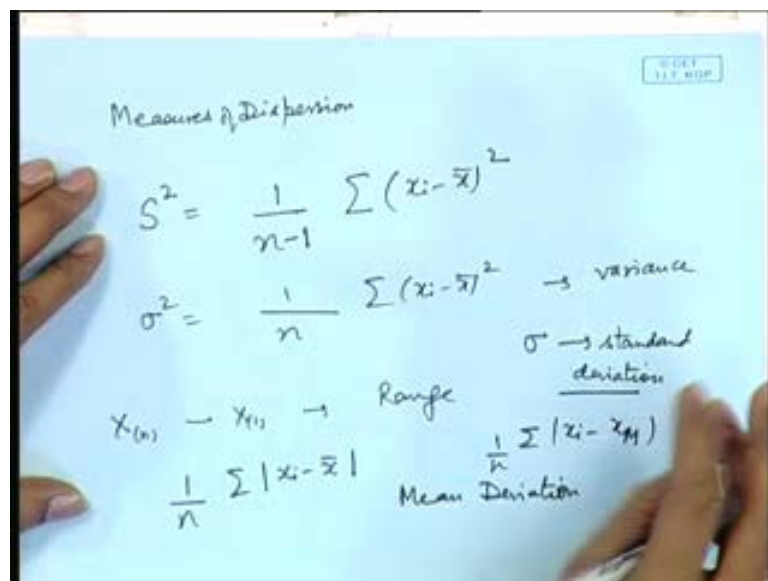 © CET
I.I.T. KGP
Measures of Dispersion
S² = 1/(n-1) Σ (xi - x̄)²
σ² = 1/n Σ (xi - x̄)² → variance
σ → standard
deviation
X(n) - X(1) → Range
1/n Σ |xi - x̄|
1/n Σ |xi - xM)
Mean Deviation